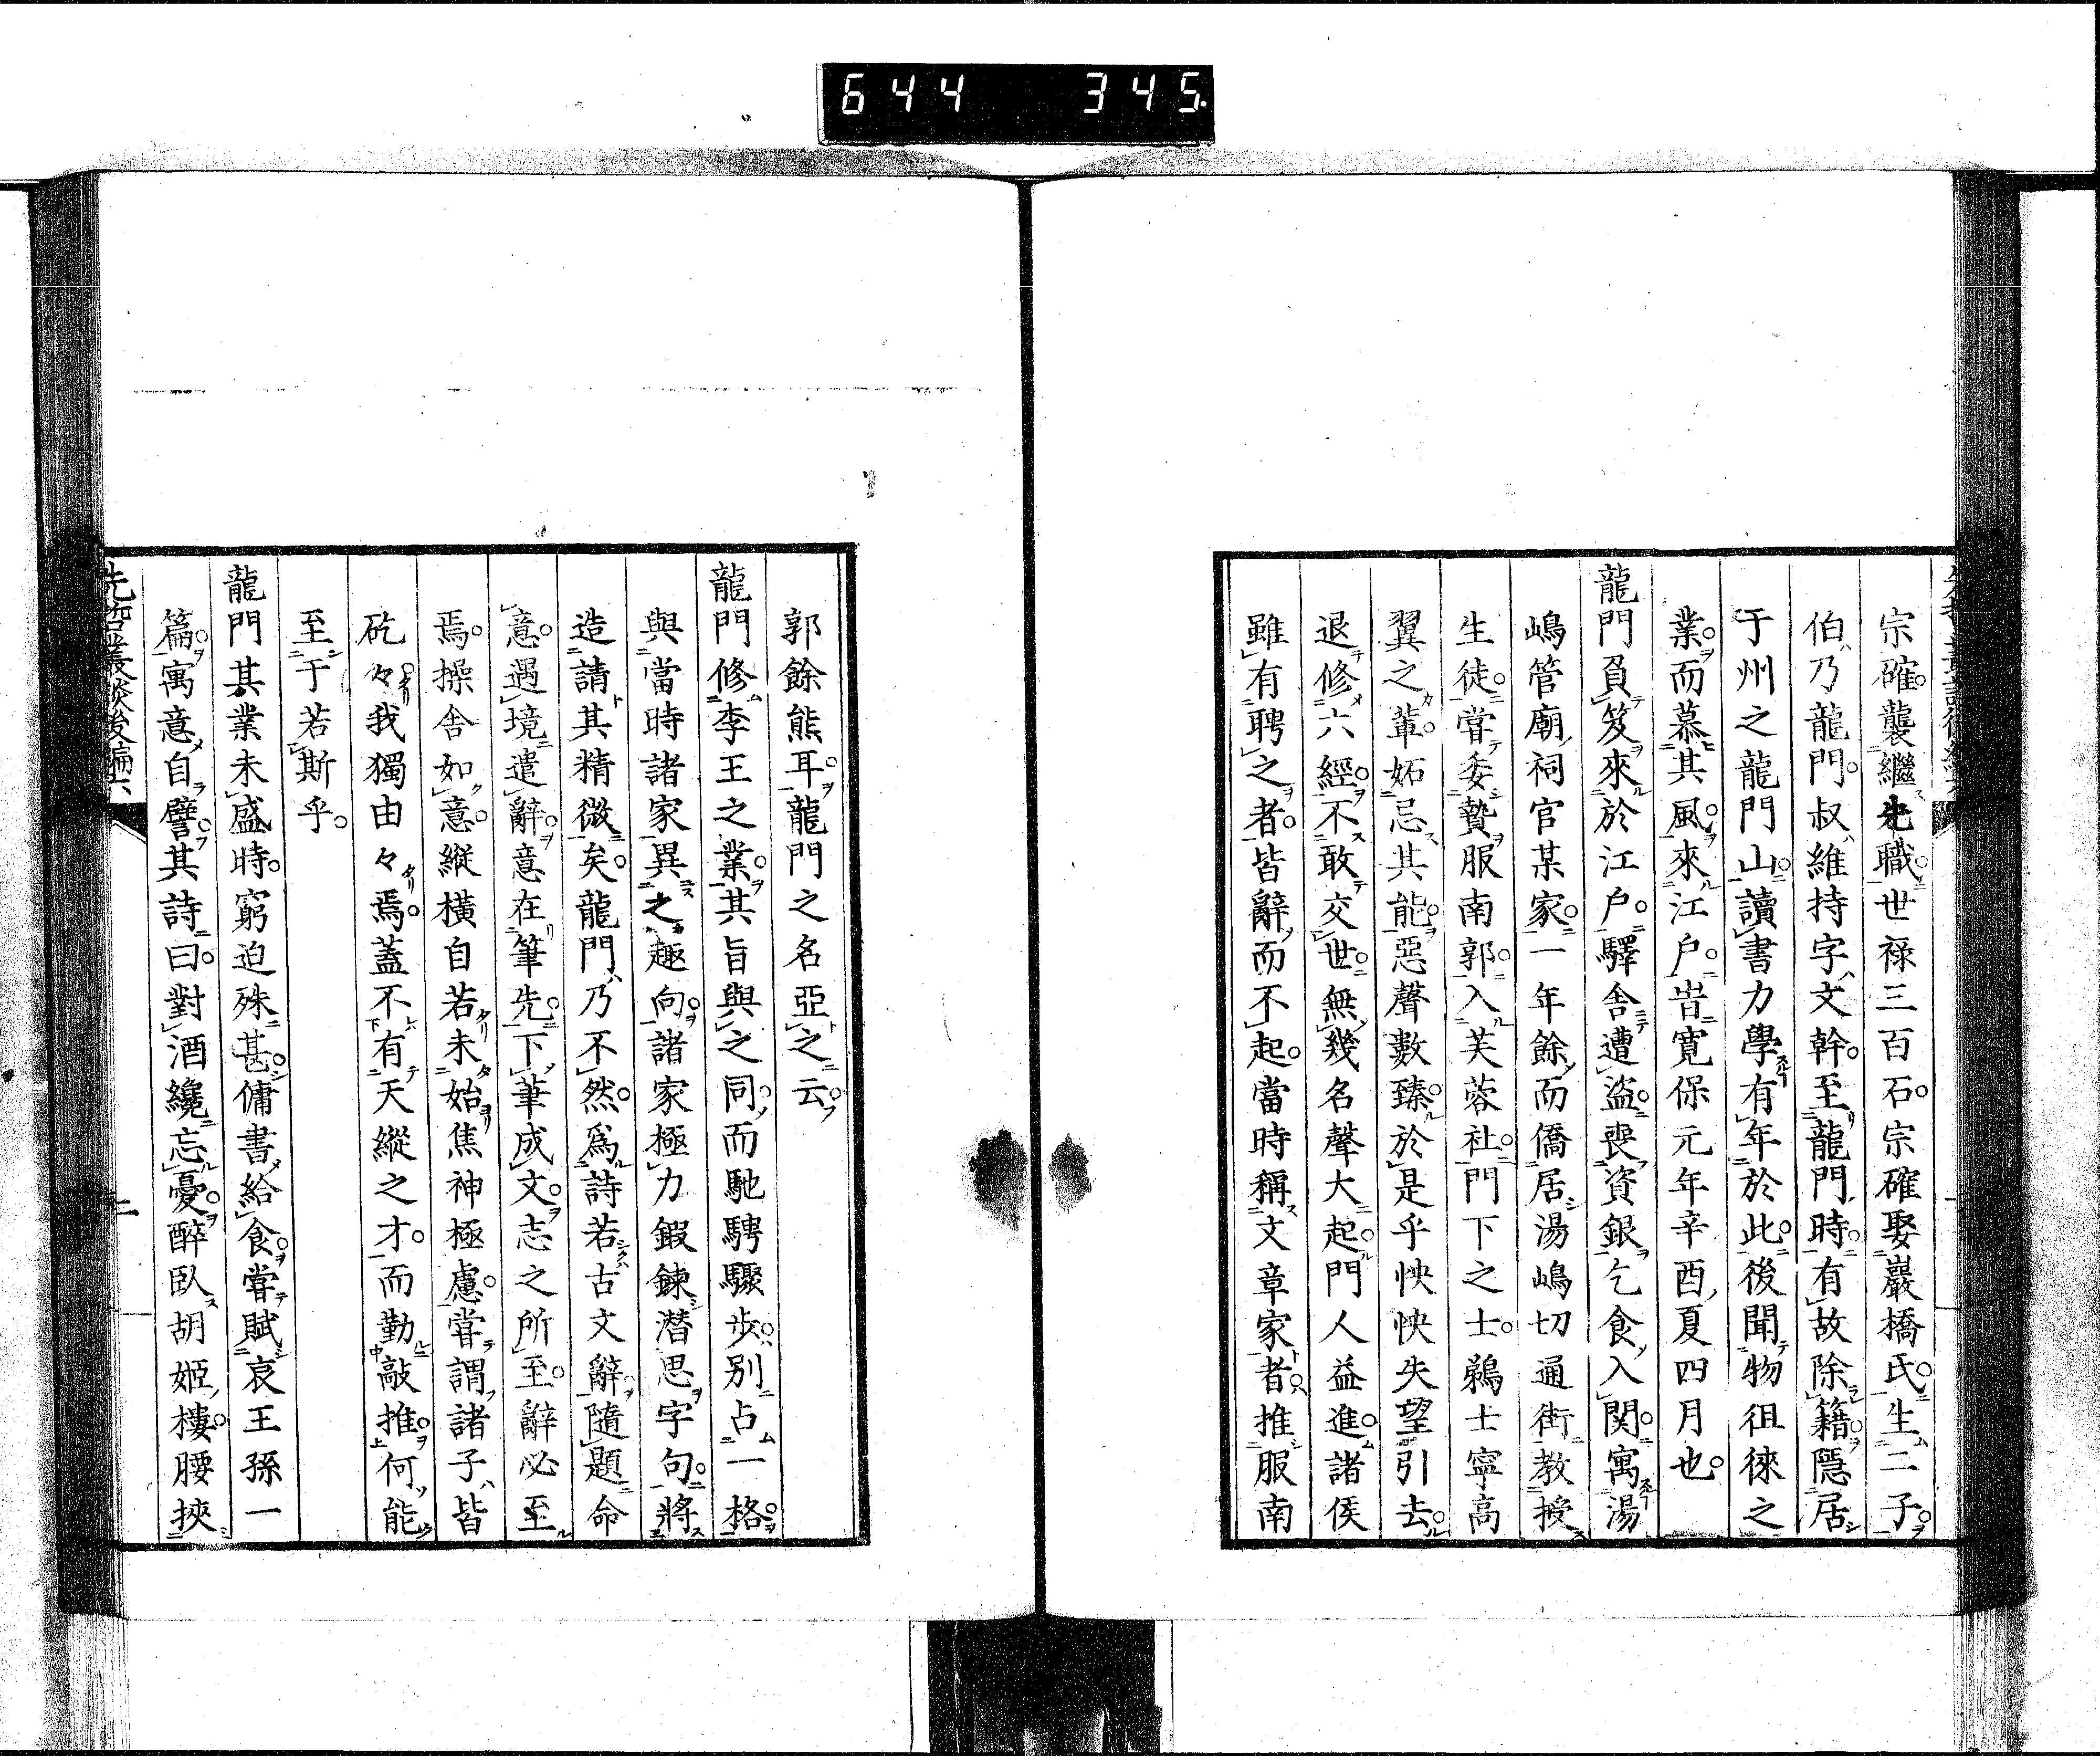 644 345
宗確襲繼先職世祿三百石宗確娶巖橋氏生二子
伯乃龍門叔維持字文幹至龍門時有故除籍隱居
于州之龍門山讀書力學有年於此後聞物徂徠之
業而慕其風來江戶旹寬保元年辛酉夏四月也
龍門負笈來於江戶驛舍遭盜喪資銀乞食入関寓湯
嶋管廟祠官某家一年餘而僑居湯嶋切通街教授
生徒嘗委贄服南郭入芙蓉社門下之士鵜士寧高
翼之輩妬忌其能惡聲數臻於是乎怏怏失望引去
退修六經不敢交世無幾名聲大起門人益進諸侯
雖有聘之者皆辭而不起當時稱文章家者推服南
郭餘熊耳龍門之名亞之云
龍門修李王之業其旨與之同而馳騁驟步別占一格
與當時諸家異之趣向諸家極力鍛鍊潛思字句將
造請其精微矣龍門乃不然爲詩若古文辭隨題命
意遇境遣辭意在筆先下筆成文志之所至辭必至
焉操舍如意縱橫自若未始焦神極慮嘗謂諸子皆
矻々我獨由々焉蓋不有天縱之才而勤敲推何能
至于若斯乎
龍門其業未盛時窮迫殊甚傭書給食嘗賦哀王孫一
篇寓意自譬其詩曰對酒纔忘憂醉臥胡姬樓腰挾
先哲叢談後編六 二